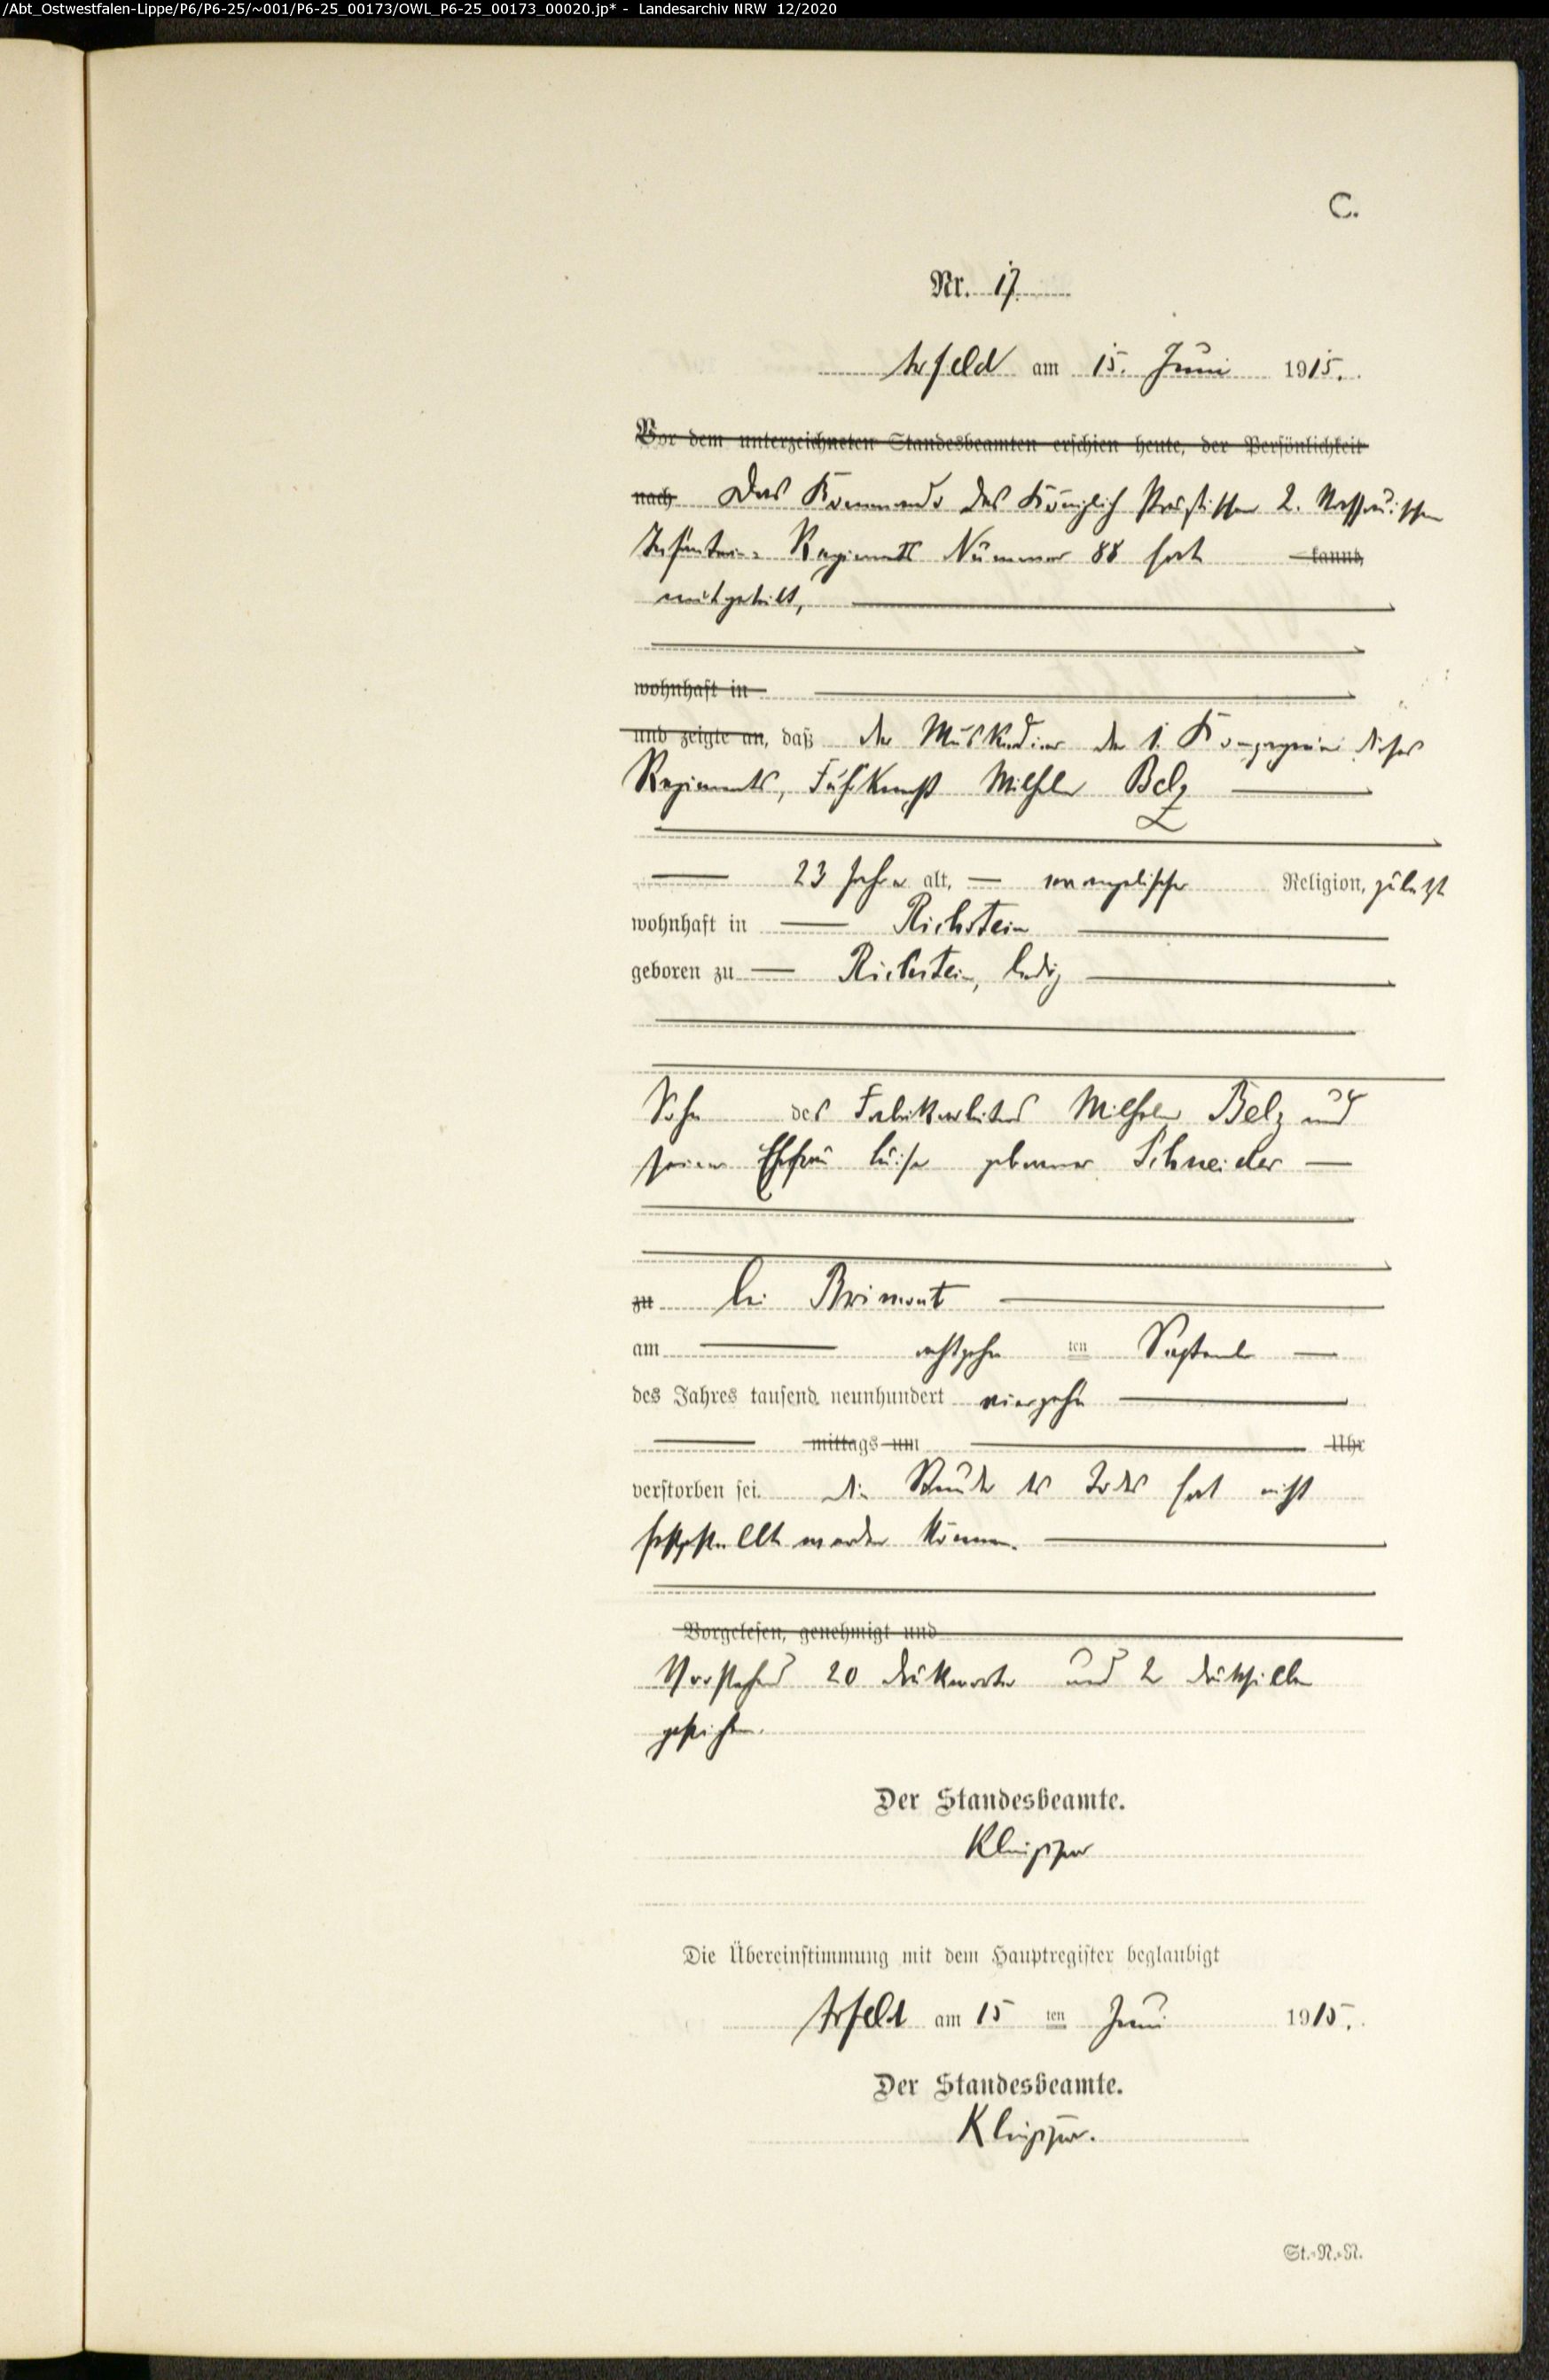 /Abt_Ostwestfalen-Lippe/P6/P6-25/~001/P6-25_00173/OWL_P6-25_00173_00020.jp* - Landesarchiv NRW 12/2020
C.
Nr. 17.
Arfeld am 15. Juni 1915.
Vor dem unterzeichneten Standesbeamten erschien heute, der Persönlichkeit
nach Das Kommando des Königlich Preußischen 2. Nassauischen
Infanterie-Regiments Nummer 88 hat kannt,
mitgeteilt,
wohnhaft in
und zeigte an, daß der Musketier der 1. Kompagnie dieses
Regiments, Wilhelm Belz
23 Jahre alt, evangelischer Religion, zuletzt
wohnhaft in Richstein
geboren zu Richstein, ledig
Sohn des Fabrikarbeiters Wilhelm Belz und
seiner Ehefrau Luise geborener Schneider
zu bei Brimont
am achtzehn ten September
des Jahres tausend neunhundert vierzehn
mittags um Uhr
verstorben sei. Die Stunde des Todes hat nicht
festgestellt werden können.
Vorgelesen, genehmigt und
Vorstehend 20 Druckworte und 2 Drucksilben
gestrichen.
Der Standesbeamte.
Die Übereinstimmung mit dem Hauptregister beglaubigt
Arfeld am 15 ten Juni 1915.
Der Standesbeamte.
St.-R.-N.